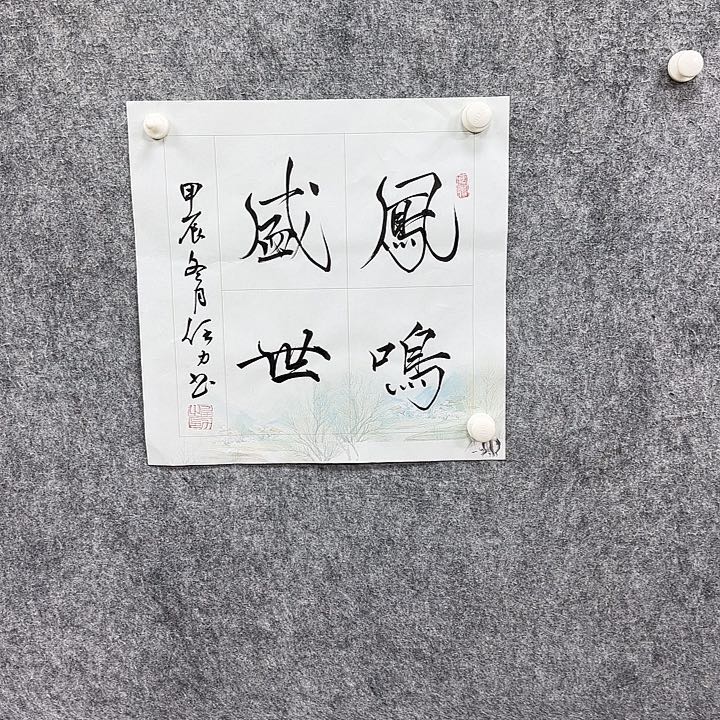 鳳鳴
盛世
甲辰冬月任力书